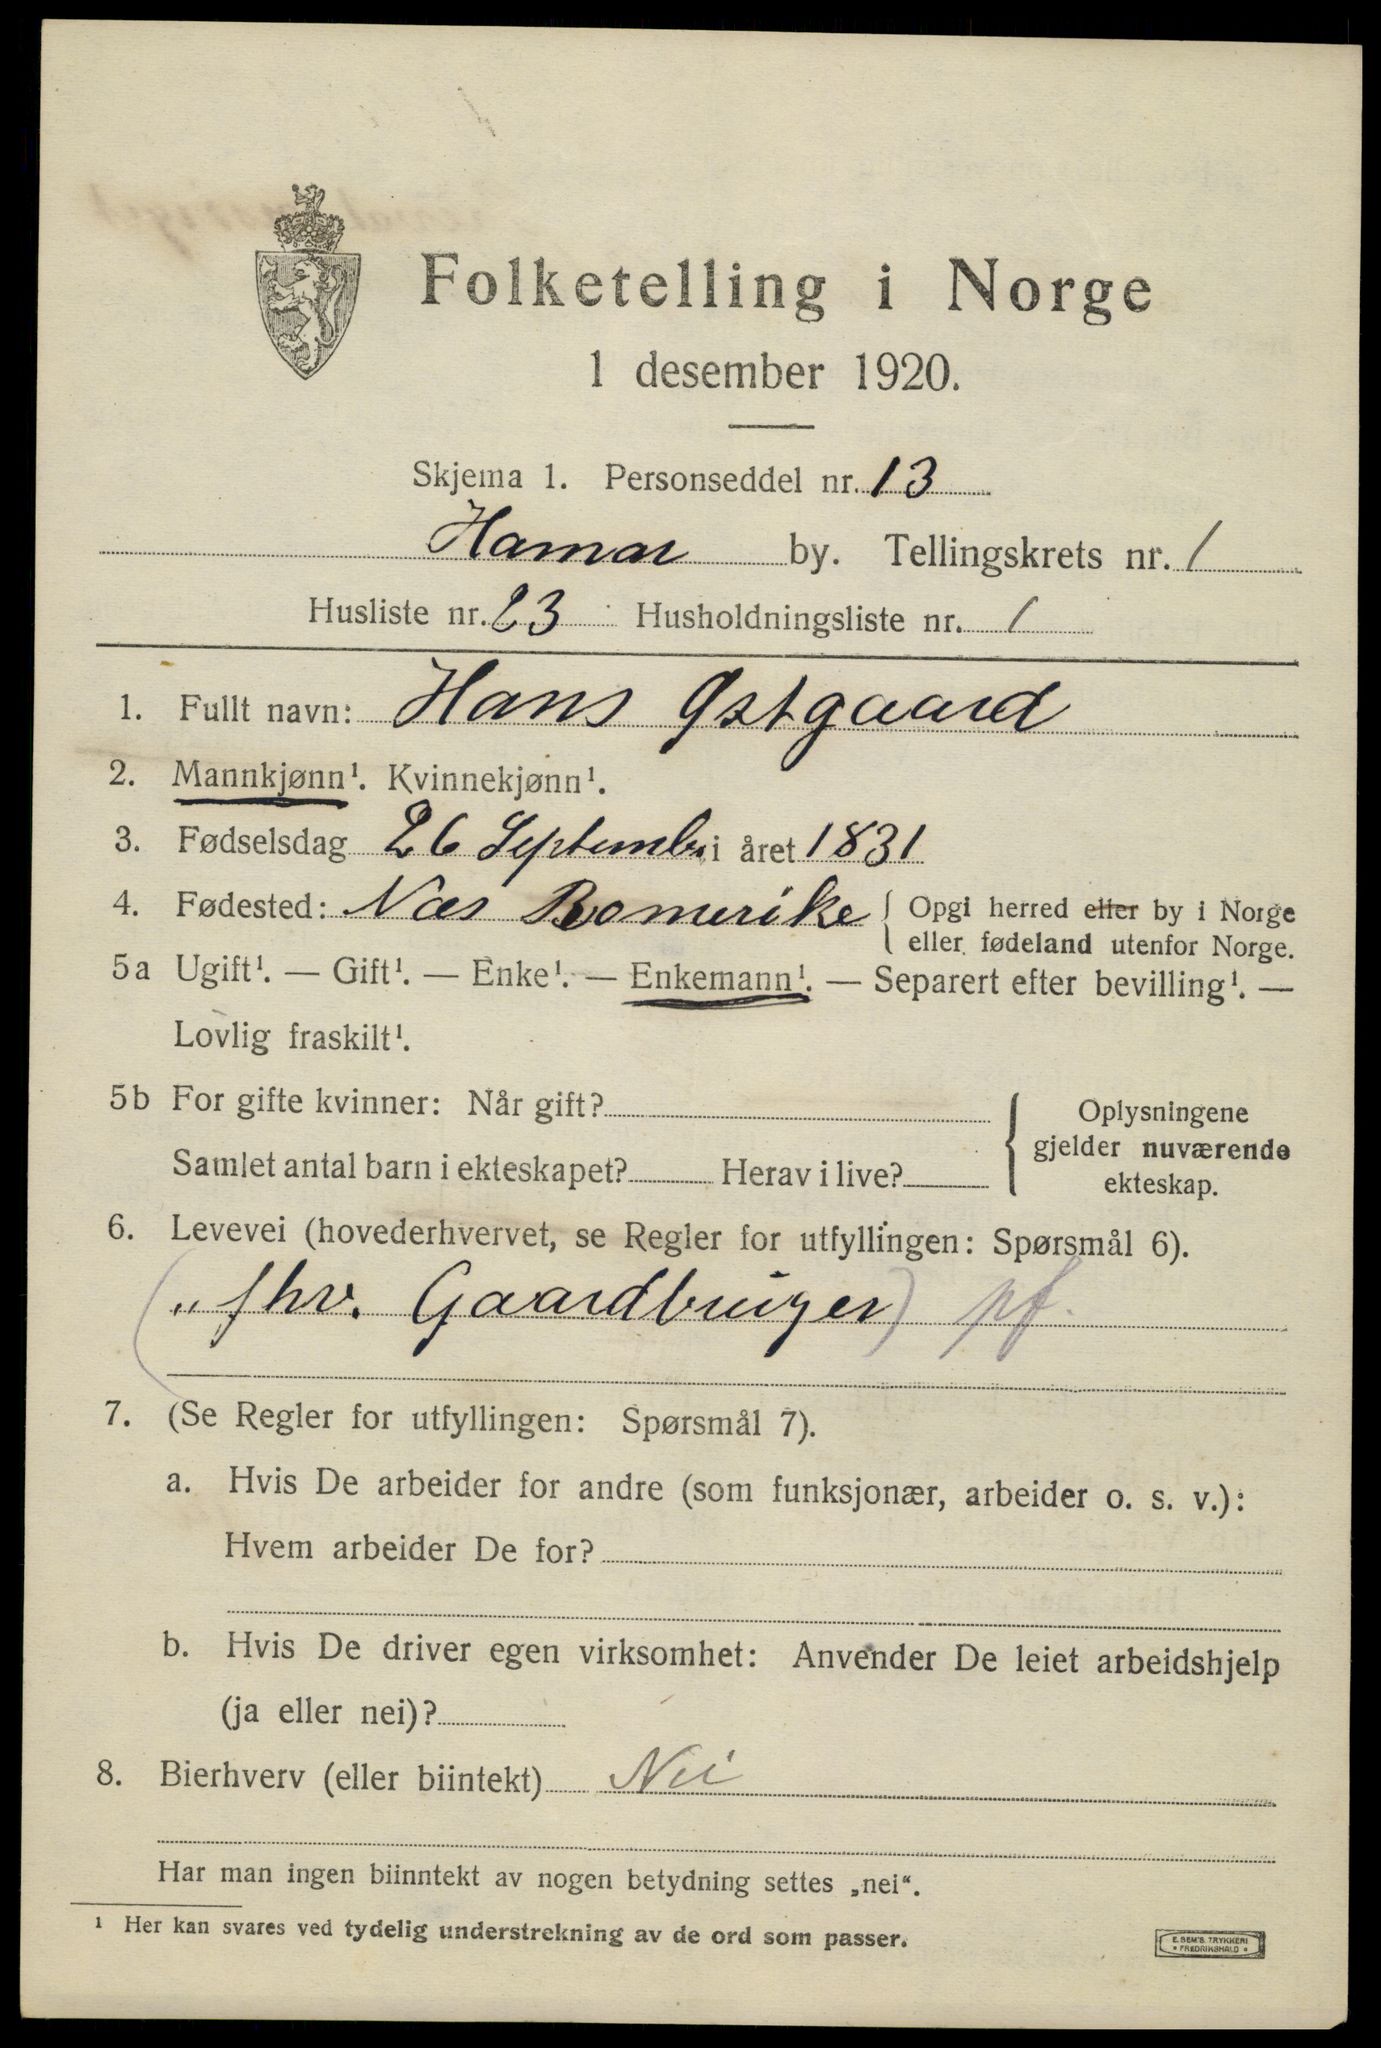 Folketelling i Norge
1 desember 1920.
Skjema 1. Personseddel nr. 13
Hamar by. Tellingskrets nr. 1
Husliste nr. 23 Husholdningsliste nr. 1
1. Fullt navn: Hans Østgaard
2. Mannkjønn¹. Kvinnekjønn¹.
3. Fødselsdag 26 Septembr i året 1831
4. Fødested: Næs Romerike { Opgi herred eller by i Norge
eller fødeland utenfor Norge.
5a Ugift¹. — Gift¹. — Enke¹. — Enkemann¹. — Separert efter bevilling¹. —
Lovlig fraskilt¹.
5b For gifte kvinner: Når gift?
Samlet antal barn i ekteskapet? Herav i live?
{ Oplysningene
gjelder nuværende
ekteskap.
6. Levevei (hovederhvervet, se Regler for utfyllingen: Spørsmål 6).
(„ fhv. Gaardbruger) pf.
7. (Se Regler for utfyllingen: Spørsmål 7).
a. Hvis De arbeider for andre (som funksjonær, arbeider o. s. v.):
Hvem arbeider De for?
b. Hvis De driver egen virksomhet: Anvender De leiet arbeidshjelp
(ja eller nei)?
8. Bierhverv (eller biintekt) Nei
Har man ingen biinntekt av nogen betydning settes „nei“.
¹ Her kan svares ved tydelig understrekning av de ord som passer.
E. SEM'S TRYKKERI
• FREDRIKSHALD •